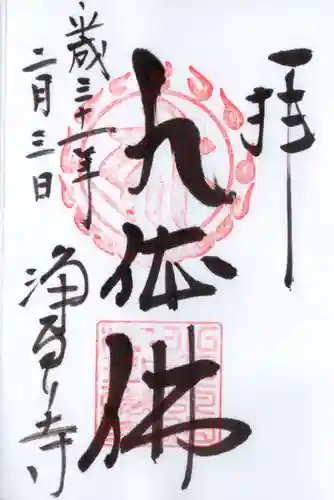 拝
九体佛
平成三十一年
二月三日
浄るり寺